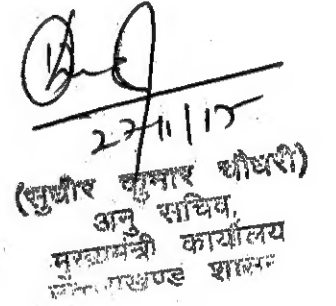 27/11/15
(सुधीर कुमार चौधरी)
अनु सचिव,
मुख्यमंत्री कार्यालय
उत्तराखण्ड शासन